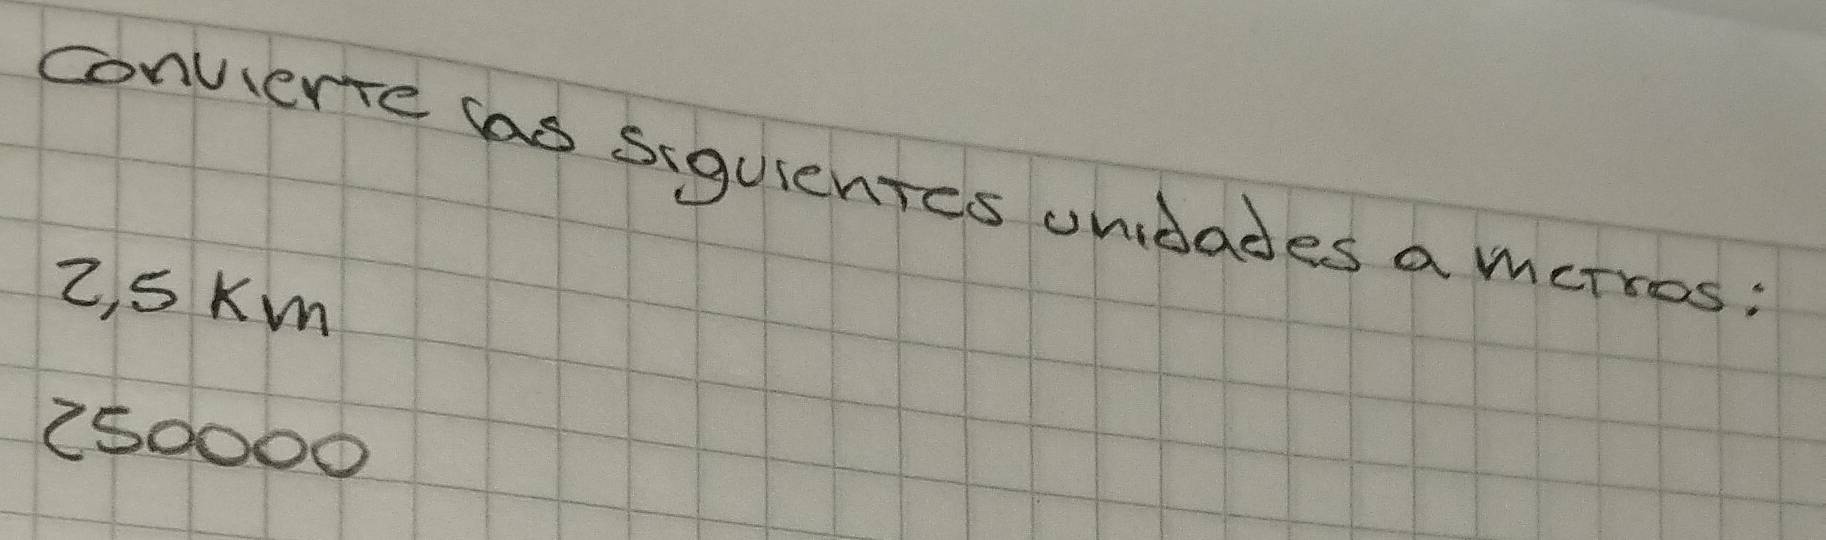 Convierte las siguientes unidades a metros:
2,5 Km
250000